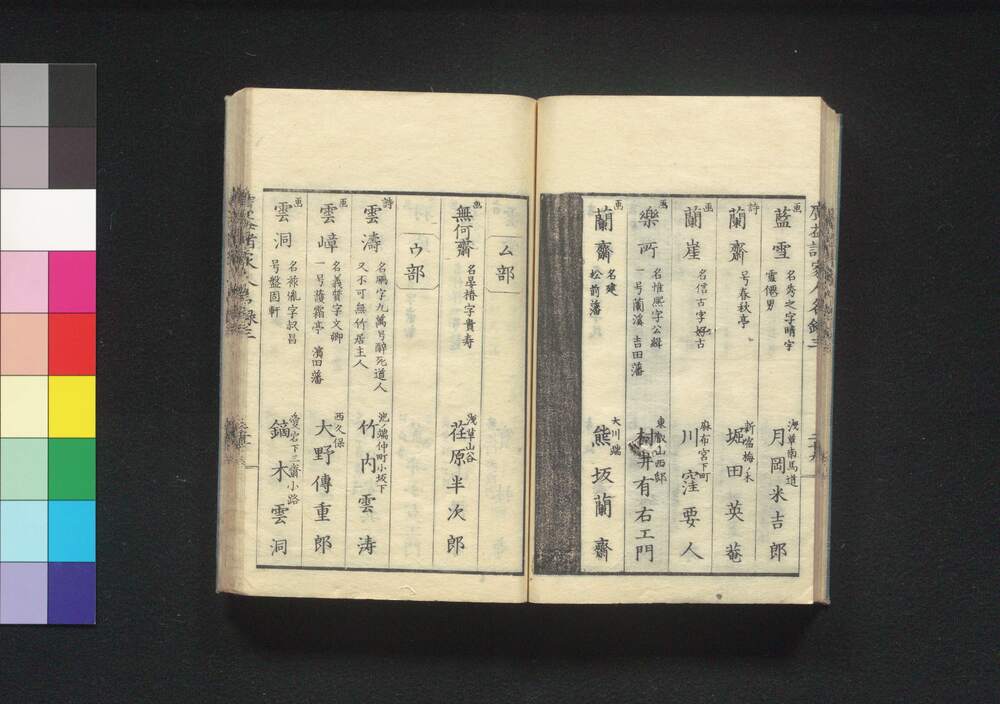 画
藍雪
名秀之字晴宇
雪僊男
浅草南馬道
月岡米吉郎
詩
蘭齋
号春秋亭
新富梅ノ木
堀田英菴
画
蘭崖
名信古字好古
麻布宮下町
川窪要人
画
楽所
名惟熈字公緝
一号蘭溪 吉田藩
東叡山西邸
村井有右エ門
画
蘭齋
名建
松前藩
大川端
熊坂蘭齋
ム部
画
無何齋
名昻椿字貴寿
浅草山谷
荏原半次郎
ウ部
詩
雲濤
名鵬字九萬号醉死道人
又不可無竹居主人
池ノ端仲町小坂下
竹内雲涛
画
雲嶂
名義質字文卿
一号護霜亭 濱田藩
西久保
大野傳重郎
画
雲洞
名禄胤字叔昌
号盤固軒
愛宕下三齋小路
鏑木雲洞